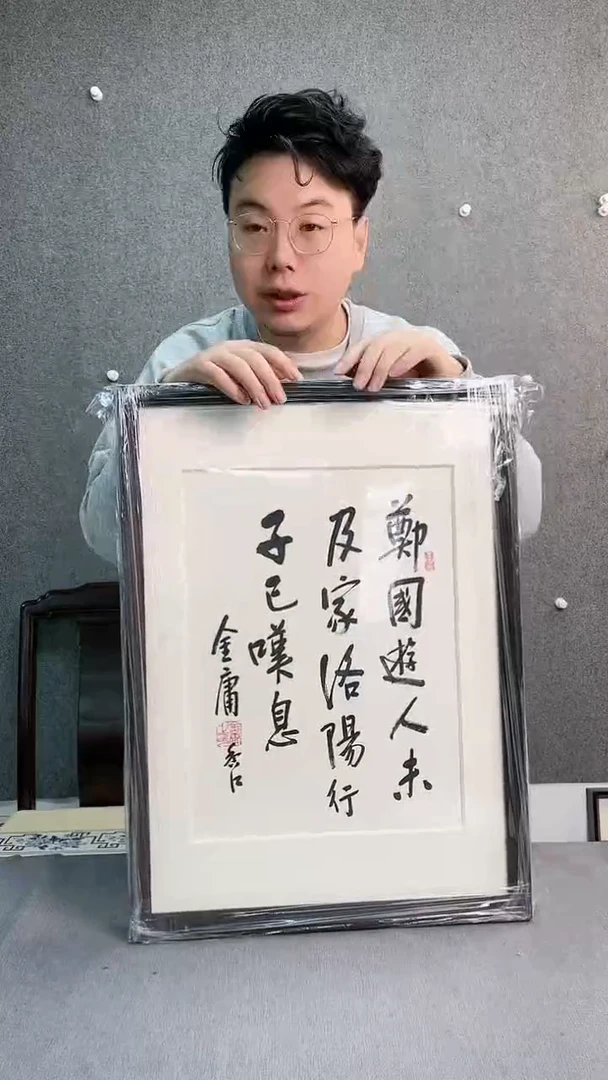 鄭國遊人未
及家洛陽行
子已嘆息
金庸
香江